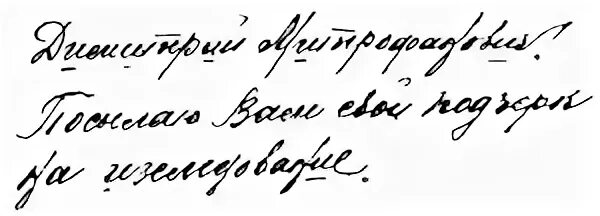 Димитрий Митрофанович!
Посылаю Вам свой подчерк
на изследование.